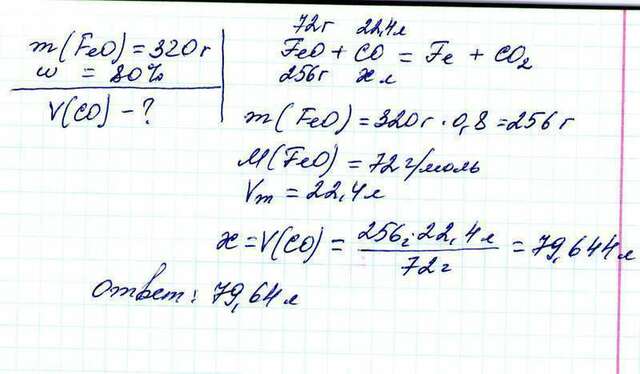 m(FeO)=320г
ω = 80%
V(CO) - ?
72г 22,4л
FeO + CO = Fe + CO₂
256г x л
m(FeO)=320г·0,8=256г
M(FeO)=72г/моль
Vm = 22,4л
x=V(CO) = 256г·22,4л / 72г = 79,644л
Ответ: 79,64л